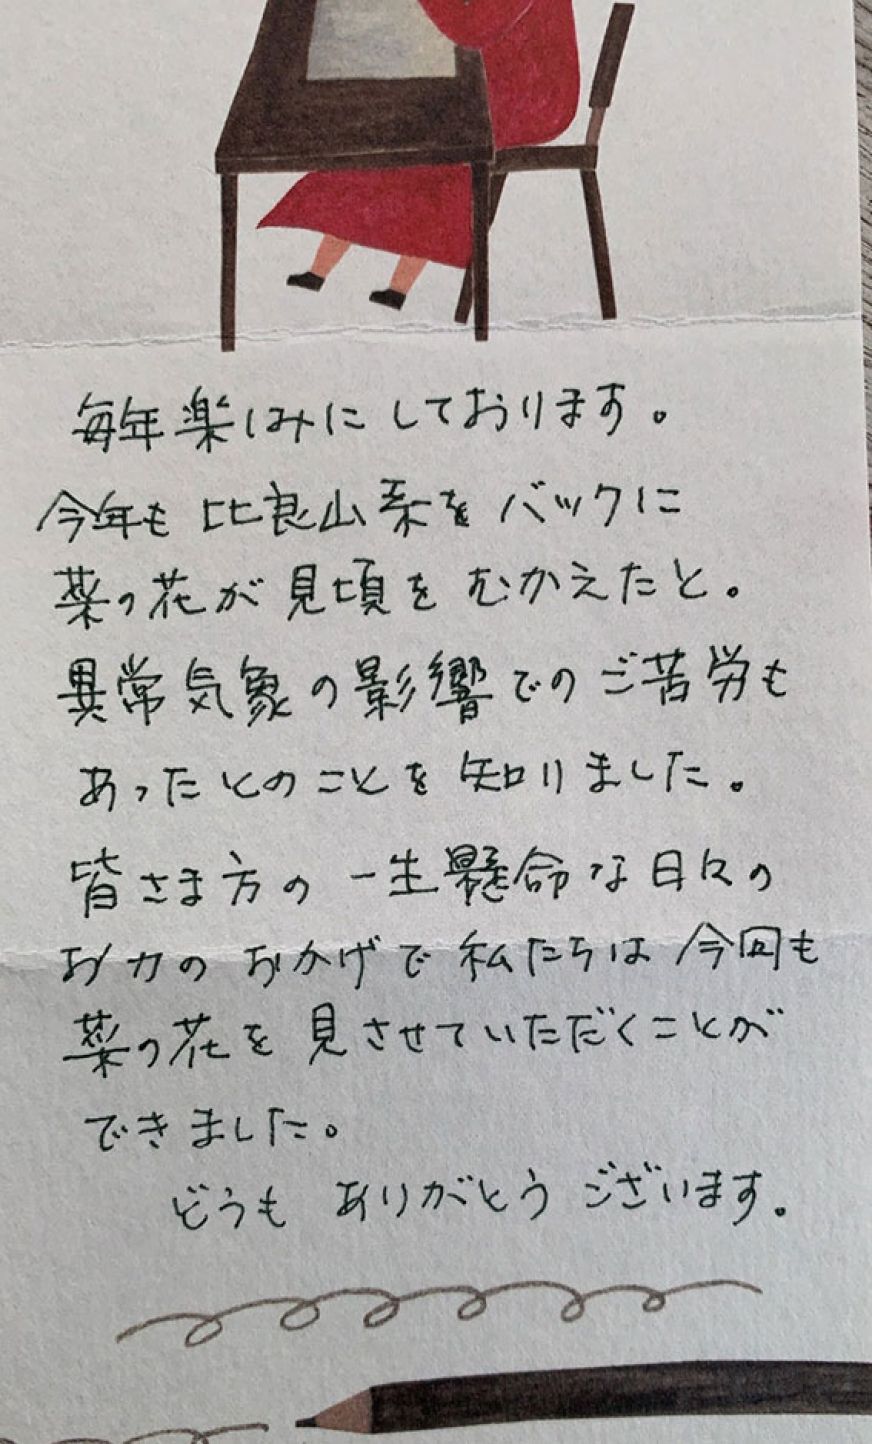 毎年楽しみにしております。
今年も比良山系をバックに
菜の花が見頃をむかえたと。
異常気象の影響でのご苦労も
あったとのことを知りました。
皆さま方の一生懸命な日々の
お力のおかげで私たちは今回も
菜の花を見させていただくことが
できました。
どうもありがとうございます。